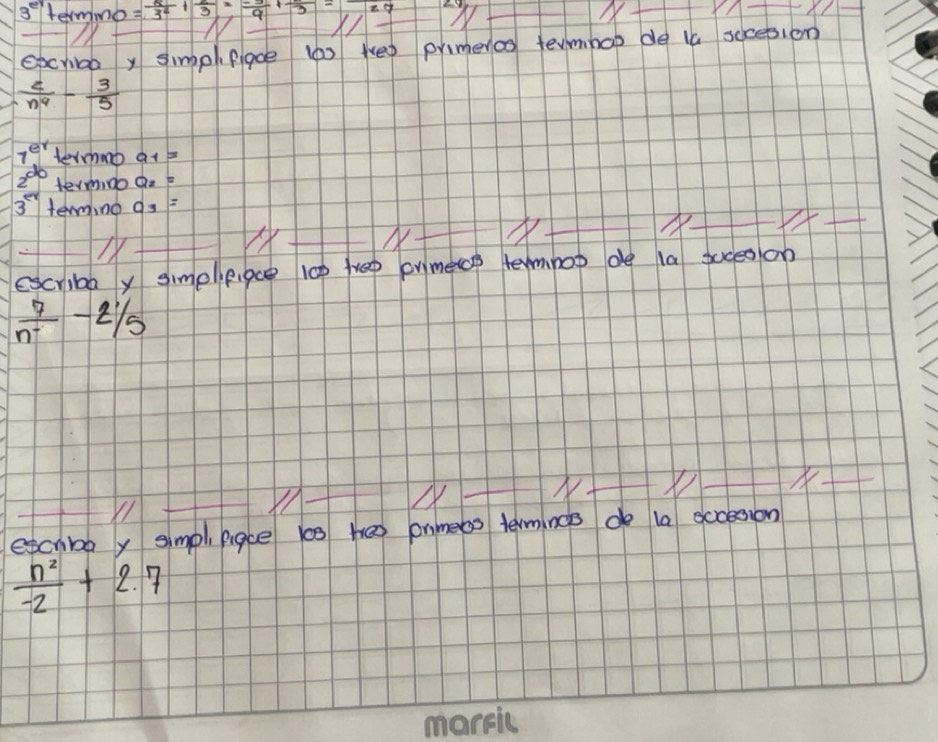 3er termino =
escriba y simplifique los tres primeros terminos de la sucesion
2/n⁴ - 3/5
1er termino a1 =
2do termino a2 =
3er termino a3 =
escriba y simplifique los tres primeros terminos de la sucesion
- 2 1/5
escriba y simplifique los tres primeros terminos de la sucesion
n²/-2 + 2.7
marfil